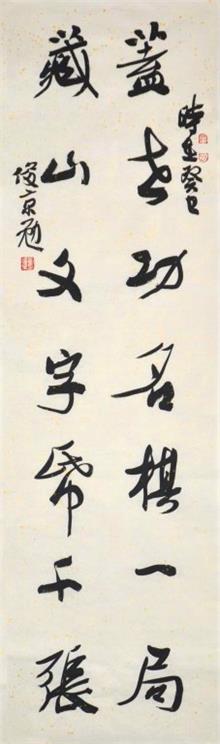 時在癸巳
蓋世功名棋一局
藏山文字紙千張
俊京題